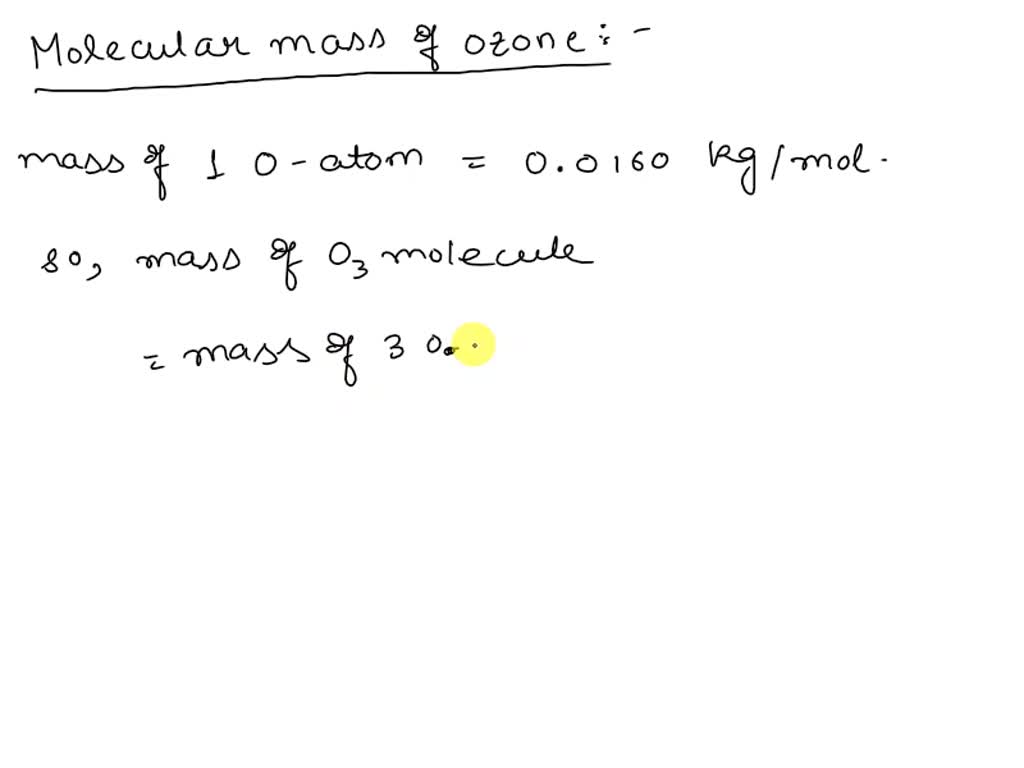 Molecular mass of ozone :-
mass of 1 O-atom = 0.0160 kg/mol.
so, mass of O₃ molecule
= mass of 3 O